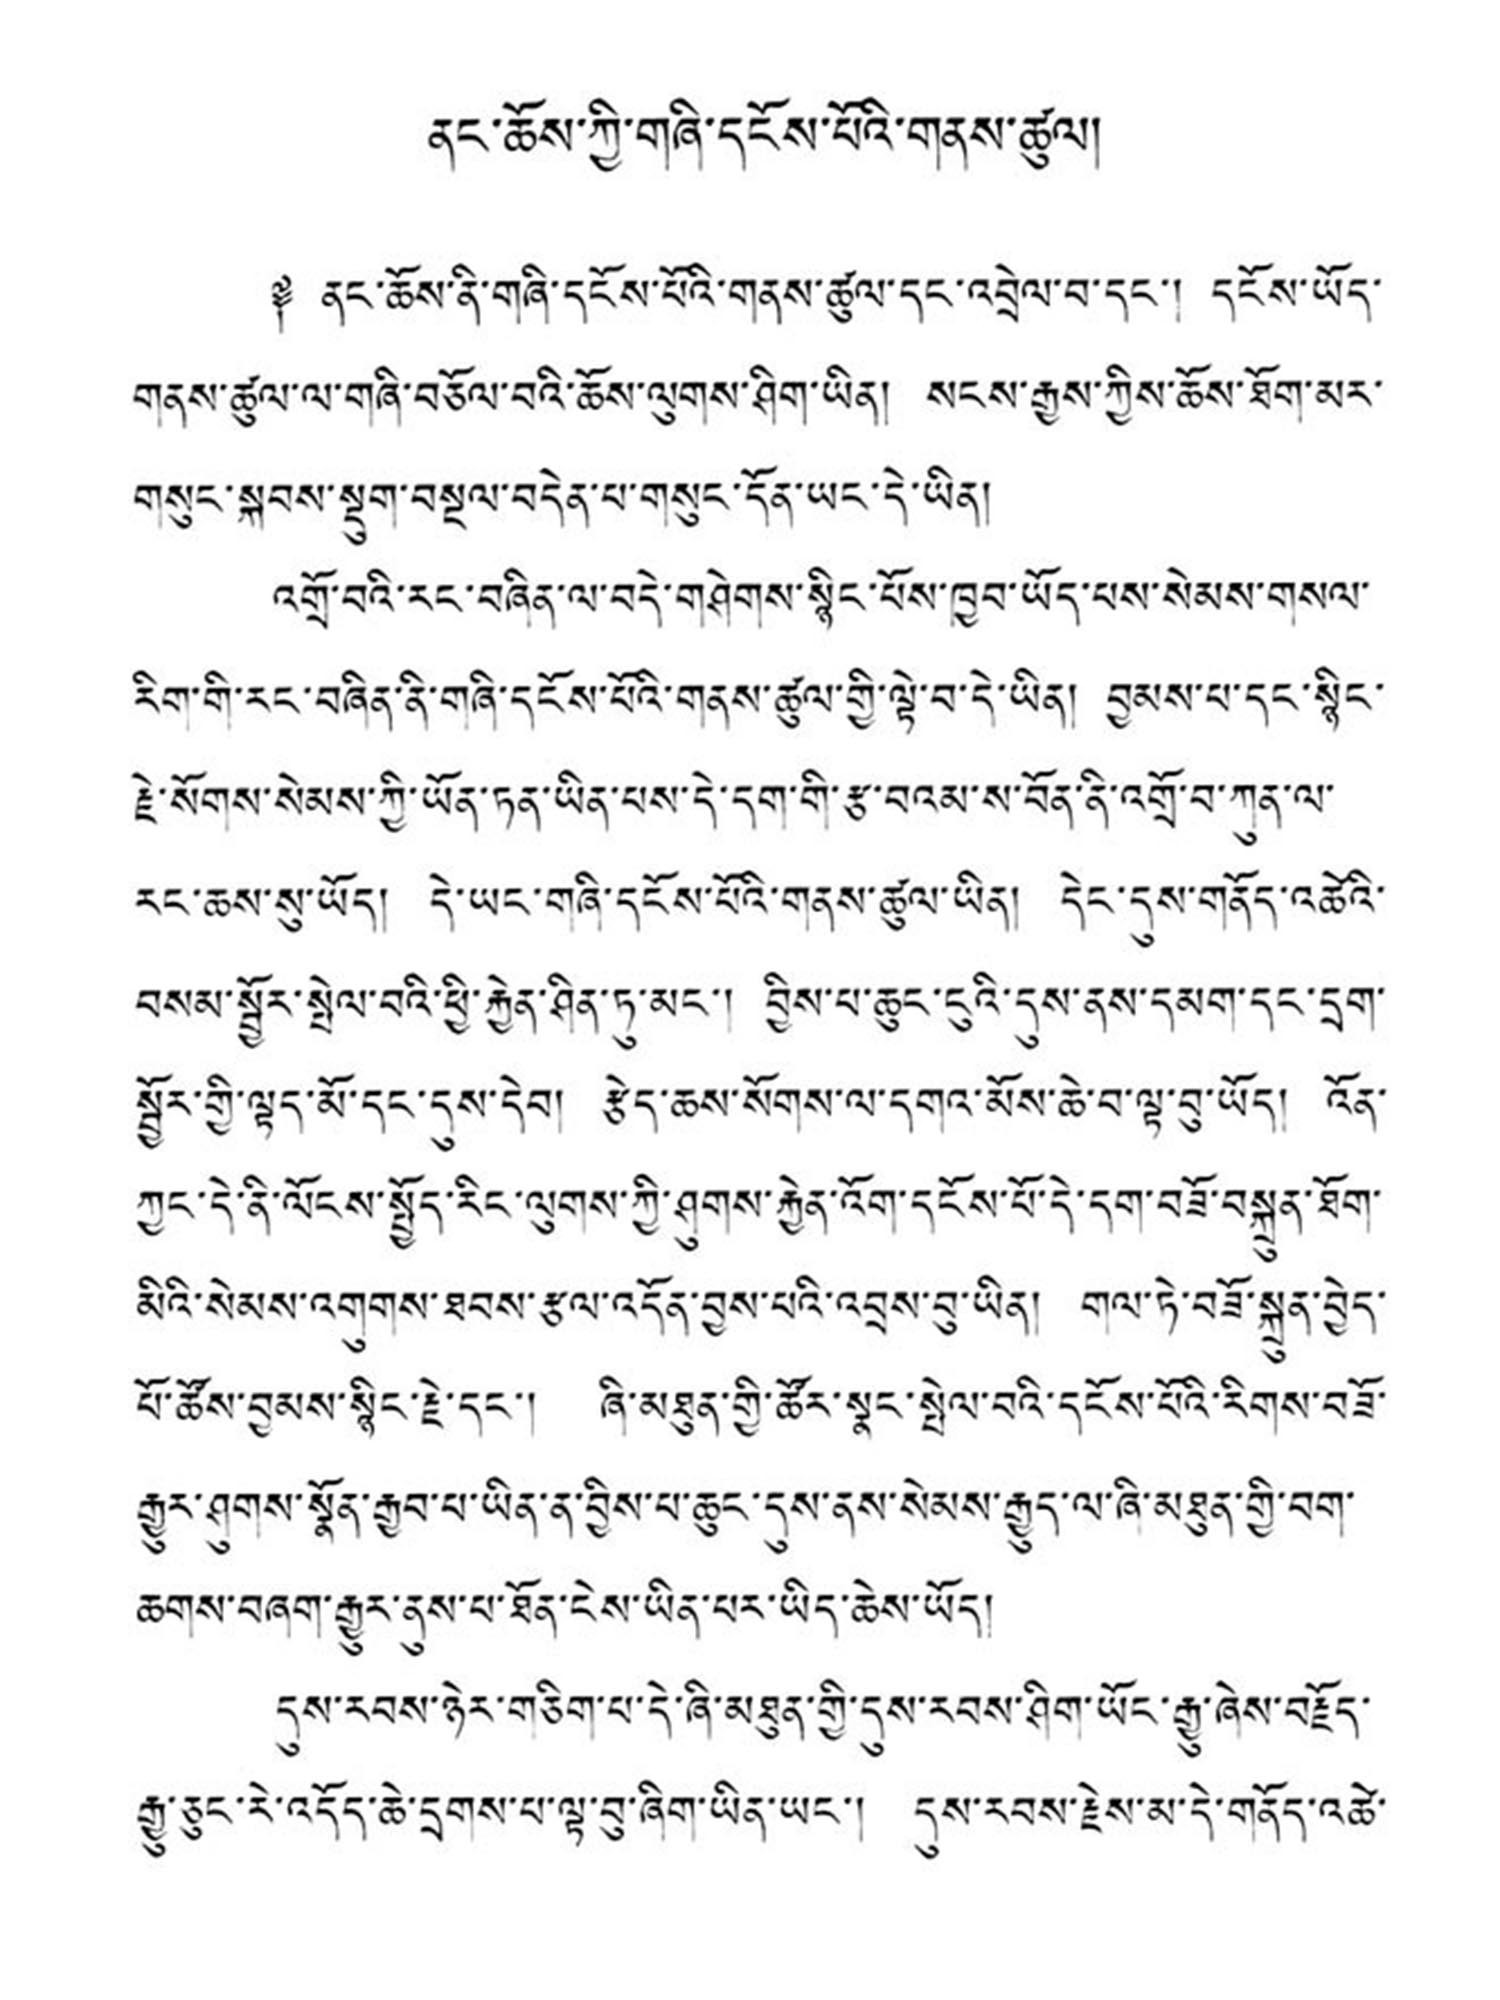 ནང་ཆོས་ཀྱི་གཞི་དངོས་པོའི་གནས་ཚུལ།
༈ ནང་ཆོས་ནི་གཞི་དངོས་པོའི་གནས་ཚུལ་དང་འབྲེལ་བ་དང་། དངོས་ཡོད་
གནས་ཚུལ་ལ་གཞི་བཅོལ་བའི་ཆོས་ལུགས་ཤིག་ཡིན། སངས་རྒྱས་ཀྱིས་ཆོས་ཐོག་མར་
གསུང་སྐབས་སྡུག་བསྔལ་བདེན་པ་གསུང་དོན་ཡང་དེ་ཡིན།
འགྲོ་བའི་རང་བཞིན་ལ་བདེ་གཤེགས་སྙིང་པོས་ཁྱབ་ཡོད་པས་སེམས་གསལ་
རིག་གི་རང་བཞིན་ནི་གཞི་དངོས་པོའི་གནས་ཚུལ་གྱི་ལྟེ་བ་དེ་ཡིན། བྱམས་པ་དང་སྙིང་
རྗེ་སོགས་སེམས་ཀྱི་ཡོན་ཏན་ཡིན་པས་དེ་དག་གི་རྩ་བའམ་ས་བོན་ནི་འགྲོ་བ་ཀུན་ལ་
རང་ཆས་སུ་ཡོད། དེ་ཡང་གཞི་དངོས་པོའི་གནས་ཚུལ་ཡིན། དེང་དུས་གནོད་འཚེའི་
བསམ་སྦྱོར་སྤེལ་བའི་ཕྱི་རྐྱེན་ཤིན་ཏུ་མང་། བྱིས་པ་ཆུང་ངུའི་དུས་ནས་དམག་དང་དྲག་
སྦྱོར་གྱི་ལྟད་མོ་དང་དུས་དེབ། རྩེད་ཆས་སོགས་ལ་དགའ་མོས་ཆེ་བ་ལྟ་བུ་ཡོད། འོན་
ཀྱང་དེ་ནི་ལོངས་སྤྱོད་རིང་ལུགས་ཀྱི་ཤུགས་རྐྱེན་འོག་དངོས་པོ་དེ་དག་བཟོ་བསྐྲུན་ཐོག་
མིའི་སེམས་འགུགས་ཐབས་རྩལ་འདོན་བྱས་པའི་འབྲས་བུ་ཡིན། གལ་ཏེ་བཟོ་སྐྲུན་བྱེད་
པོ་ཚོས་བྱམས་སྙིང་རྗེ་དང་། ཞི་མཐུན་གྱི་ཚོར་སྣང་སྤེལ་བའི་དངོས་པོའི་རིགས་བཟོ་
རྒྱུར་ཤུགས་སྣོན་རྒྱབ་པ་ཡིན་ན་བྱིས་པ་ཆུང་དུས་ནས་སེམས་རྒྱུད་ལ་ཞི་མཐུན་གྱི་བག་
ཆགས་བཞག་རྒྱུར་ནུས་པ་ཐོན་ངེས་ཡིན་པར་ཡིད་ཆེས་ཡོད།
དུས་རབས་ཉེར་གཅིག་པ་དེ་ཞི་མཐུན་གྱི་དུས་རབས་ཤིག་ཡོང་རྒྱུ་ཞེས་བརྗོད་
རྒྱུ་ཅུང་རེ་འདོད་ཆེ་དྲགས་པ་ལྟ་བུ་ཞིག་ཡིན་ཡང་། དུས་རབས་རྗེས་མ་དེ་གནོད་འཚེ་